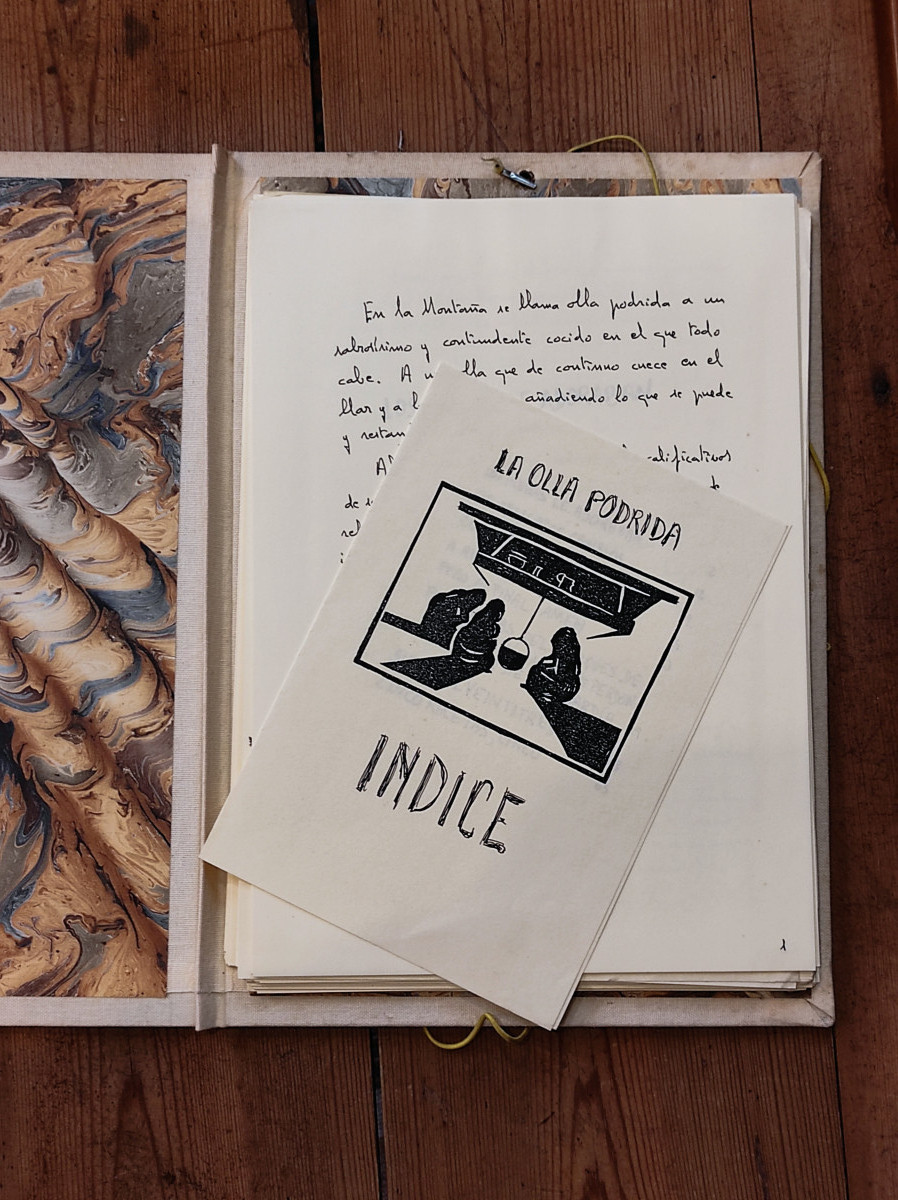 En la Montaña se llama olla podrida a un
sabrosísimo y contundente cocido en el que todo
cabe. A lla que de continuo cuece en el
llar y a añadiendo lo que se puede
y
calificativos
de
LA OLLA PODRIDA
INDICE
1